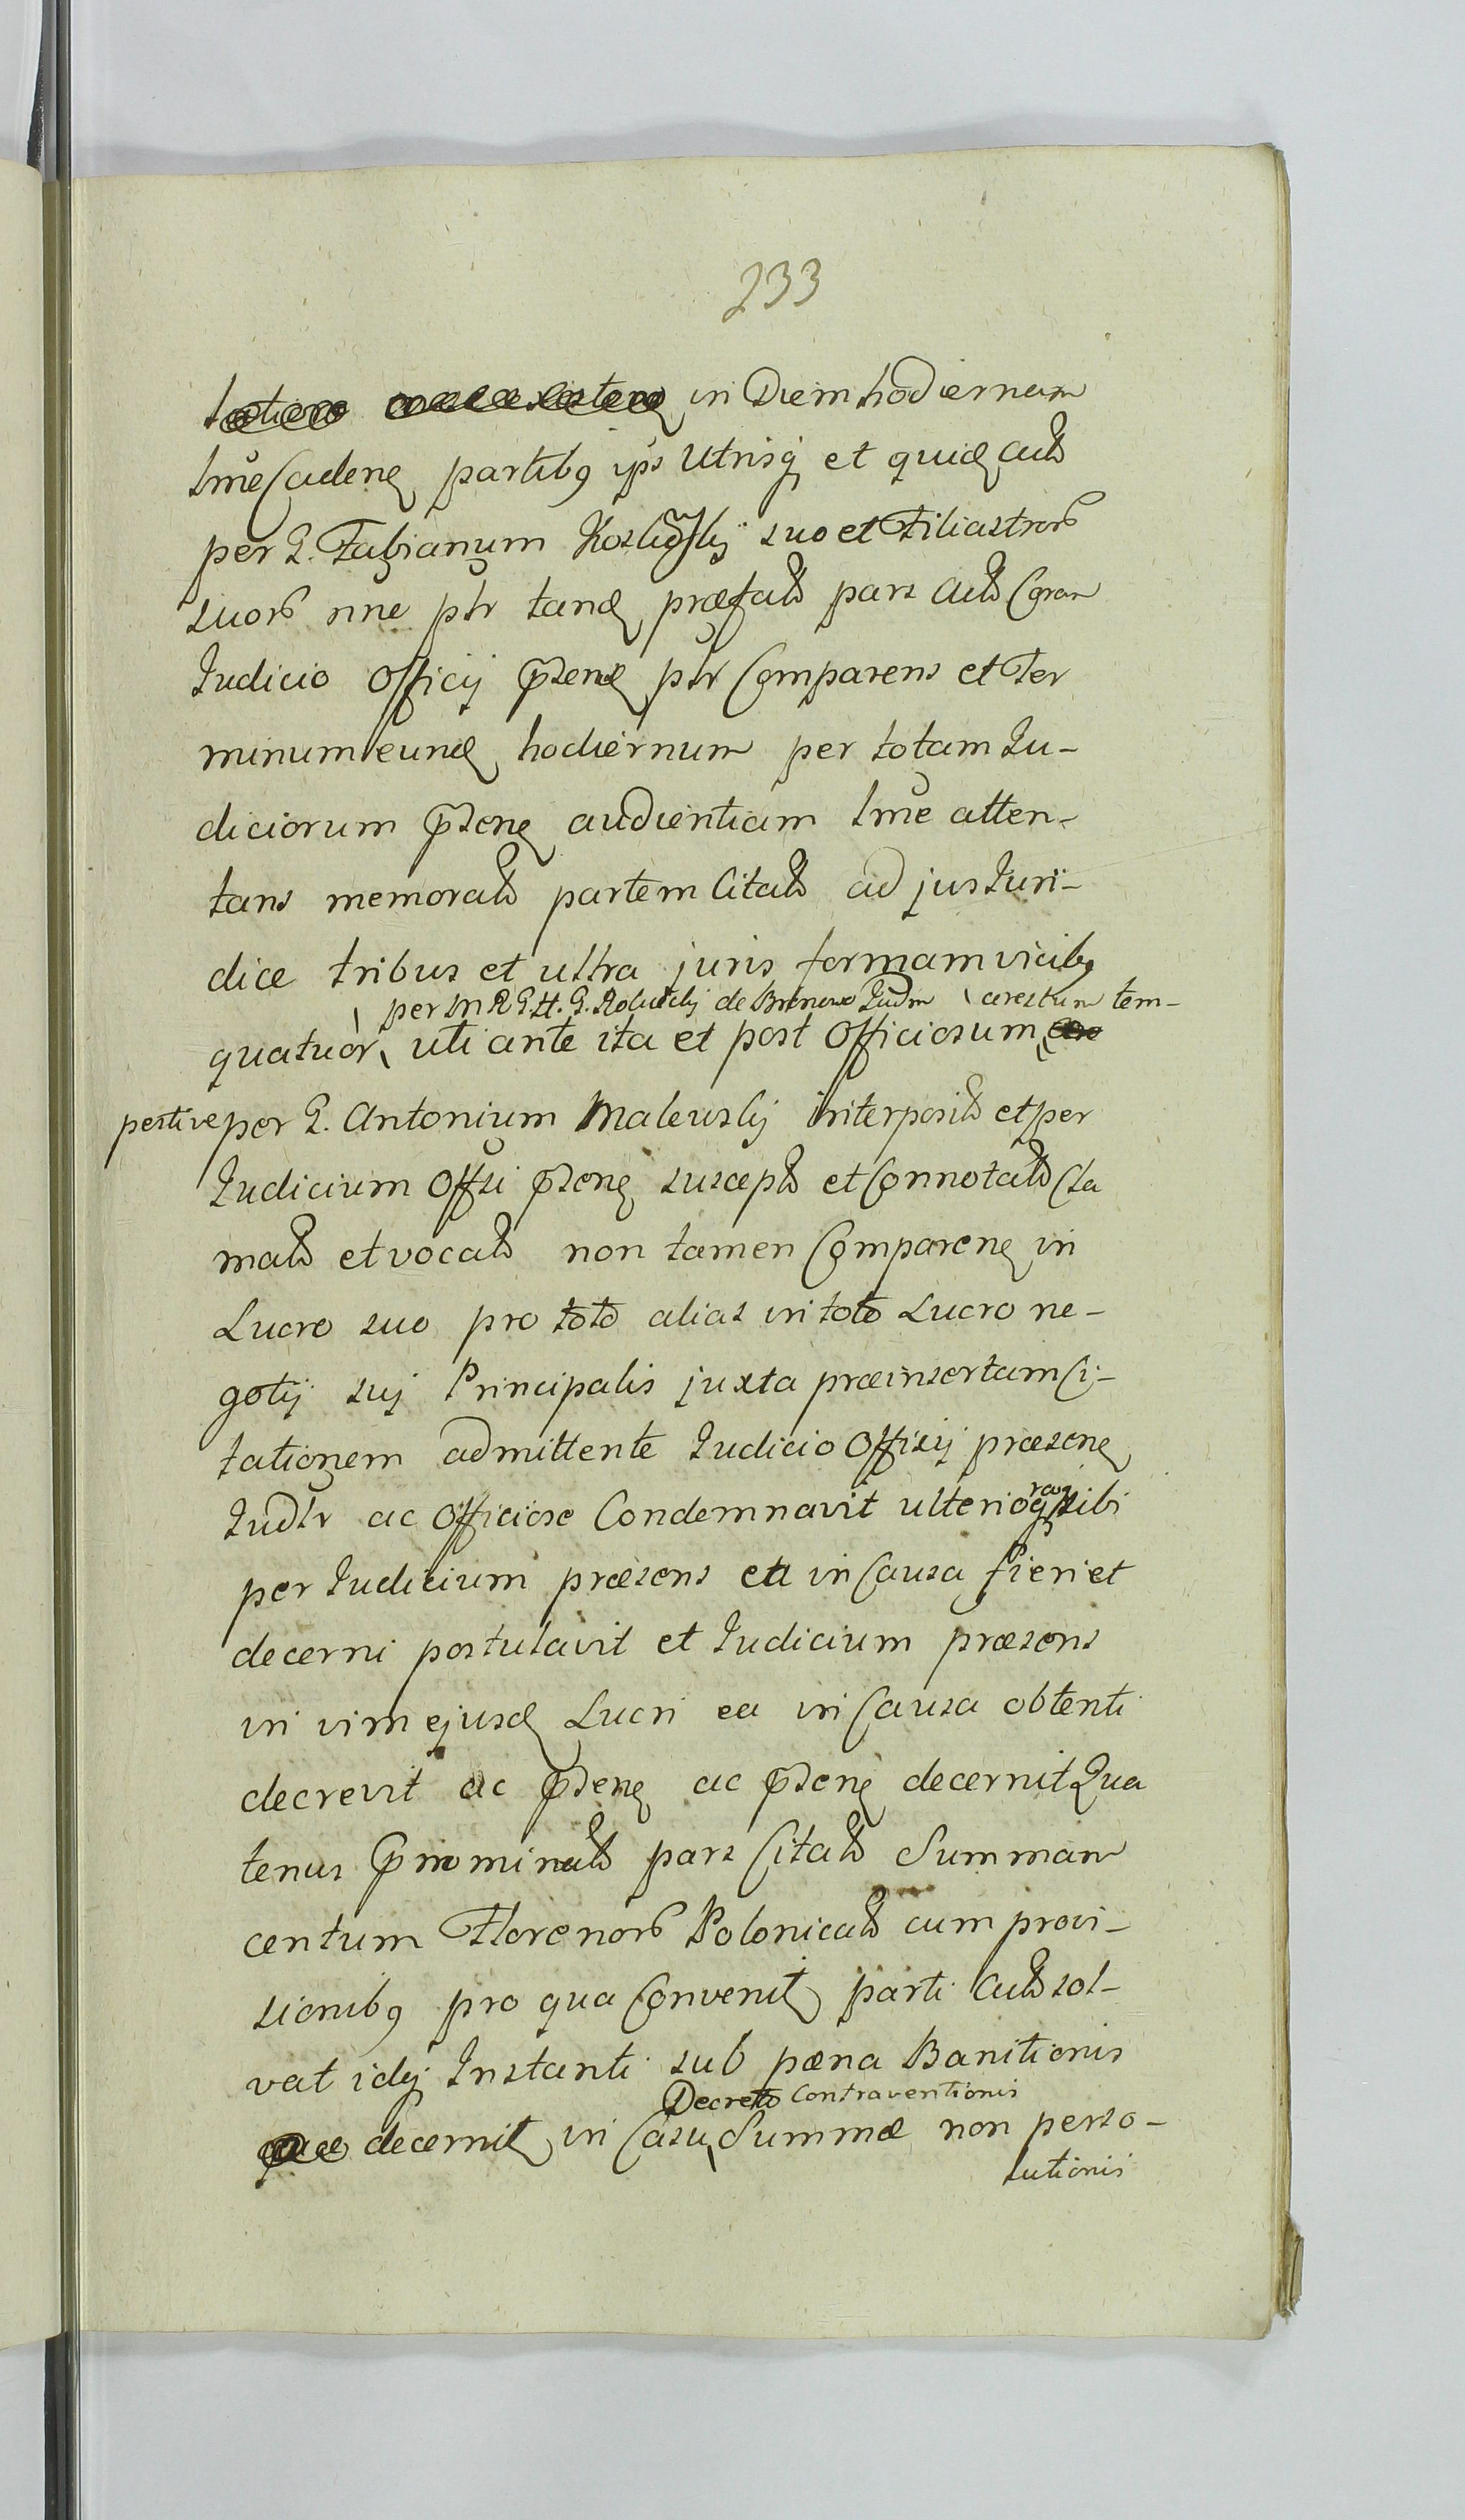 233
in Diem hodiernam
lme Caden partibq ips Utrisq et quid
per G. Fabianum suo et Filiastror
suor nne ptr tand præfat pars Coram
Iudicio Officij psend ptr Comparens et Ter
minum eund hodiernum per totam Iu-
diciorum psen audientiam lme atten-
tans memorat partem Citat ad jus Iuri-
dice tribus et ultra juris formam vicibq
per M R G. H. G. de Iudm arestum tem-
quatuor uti ante ita et post Officiosum
pestive per G. Antonium Malewskj interposit et per
Iudicium Offsi psen suscept et Connotat Cla
mat et vocat non tamen Comparen in
Lucro suo pro toto alias in toto Lucro ne-
gotij suj Principalis juxta præinsertam Ci-
tationem admittente Iudicio Officij præsen
Iudlr ac Officiose Condemnavit sibi
per Iudicium præsens ea in Causa fieri et
decerni postulavit et Iudicium præsens
in vim ejusd Lucri ea in Causa obtenti
decrevit ac psen ac psen decernit Qua
tenus pnominat pars Citat Summam
centum Florenor Polonical cum provi-
sionibq pro qua Convenit parti sol-
vat idq Instanti sub pœna Banitionis
Decreto Contraventionis
decernit in Casu Summæ non perso-
lutionis